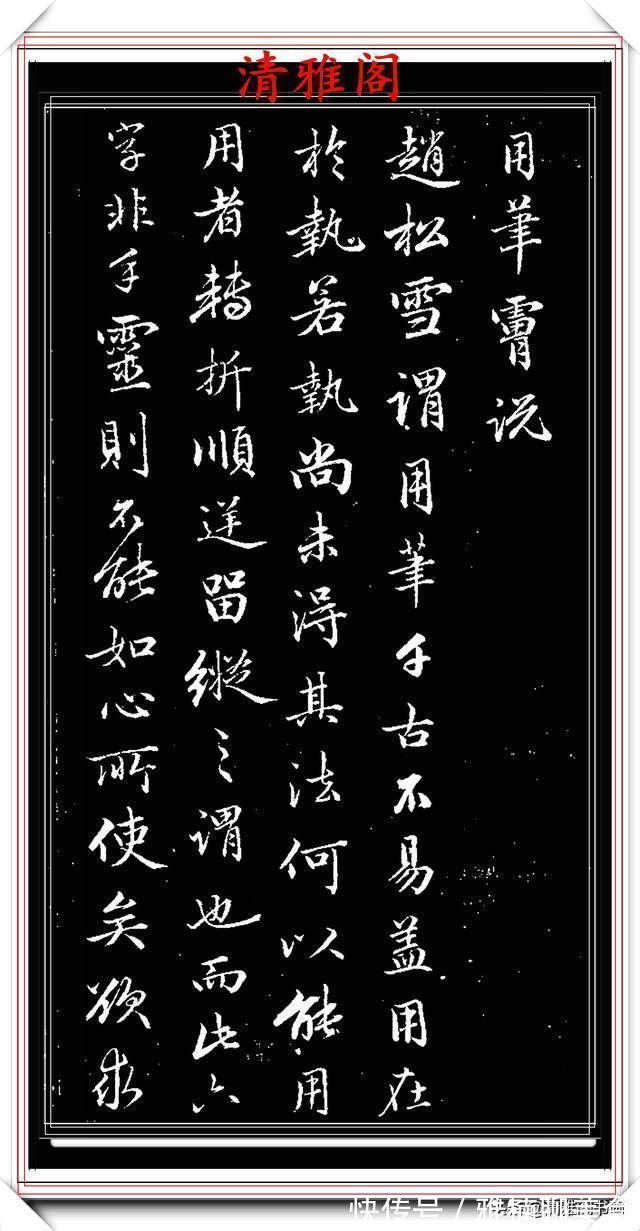 清雅阁
用筆霤说
趙松雪謂用筆千古不易盖用在
於執若執尚未得其法何以能用
用者轉折順逆留縱之謂也而此六
字非手靈則不能如心所使矣欲求
快传号/雅